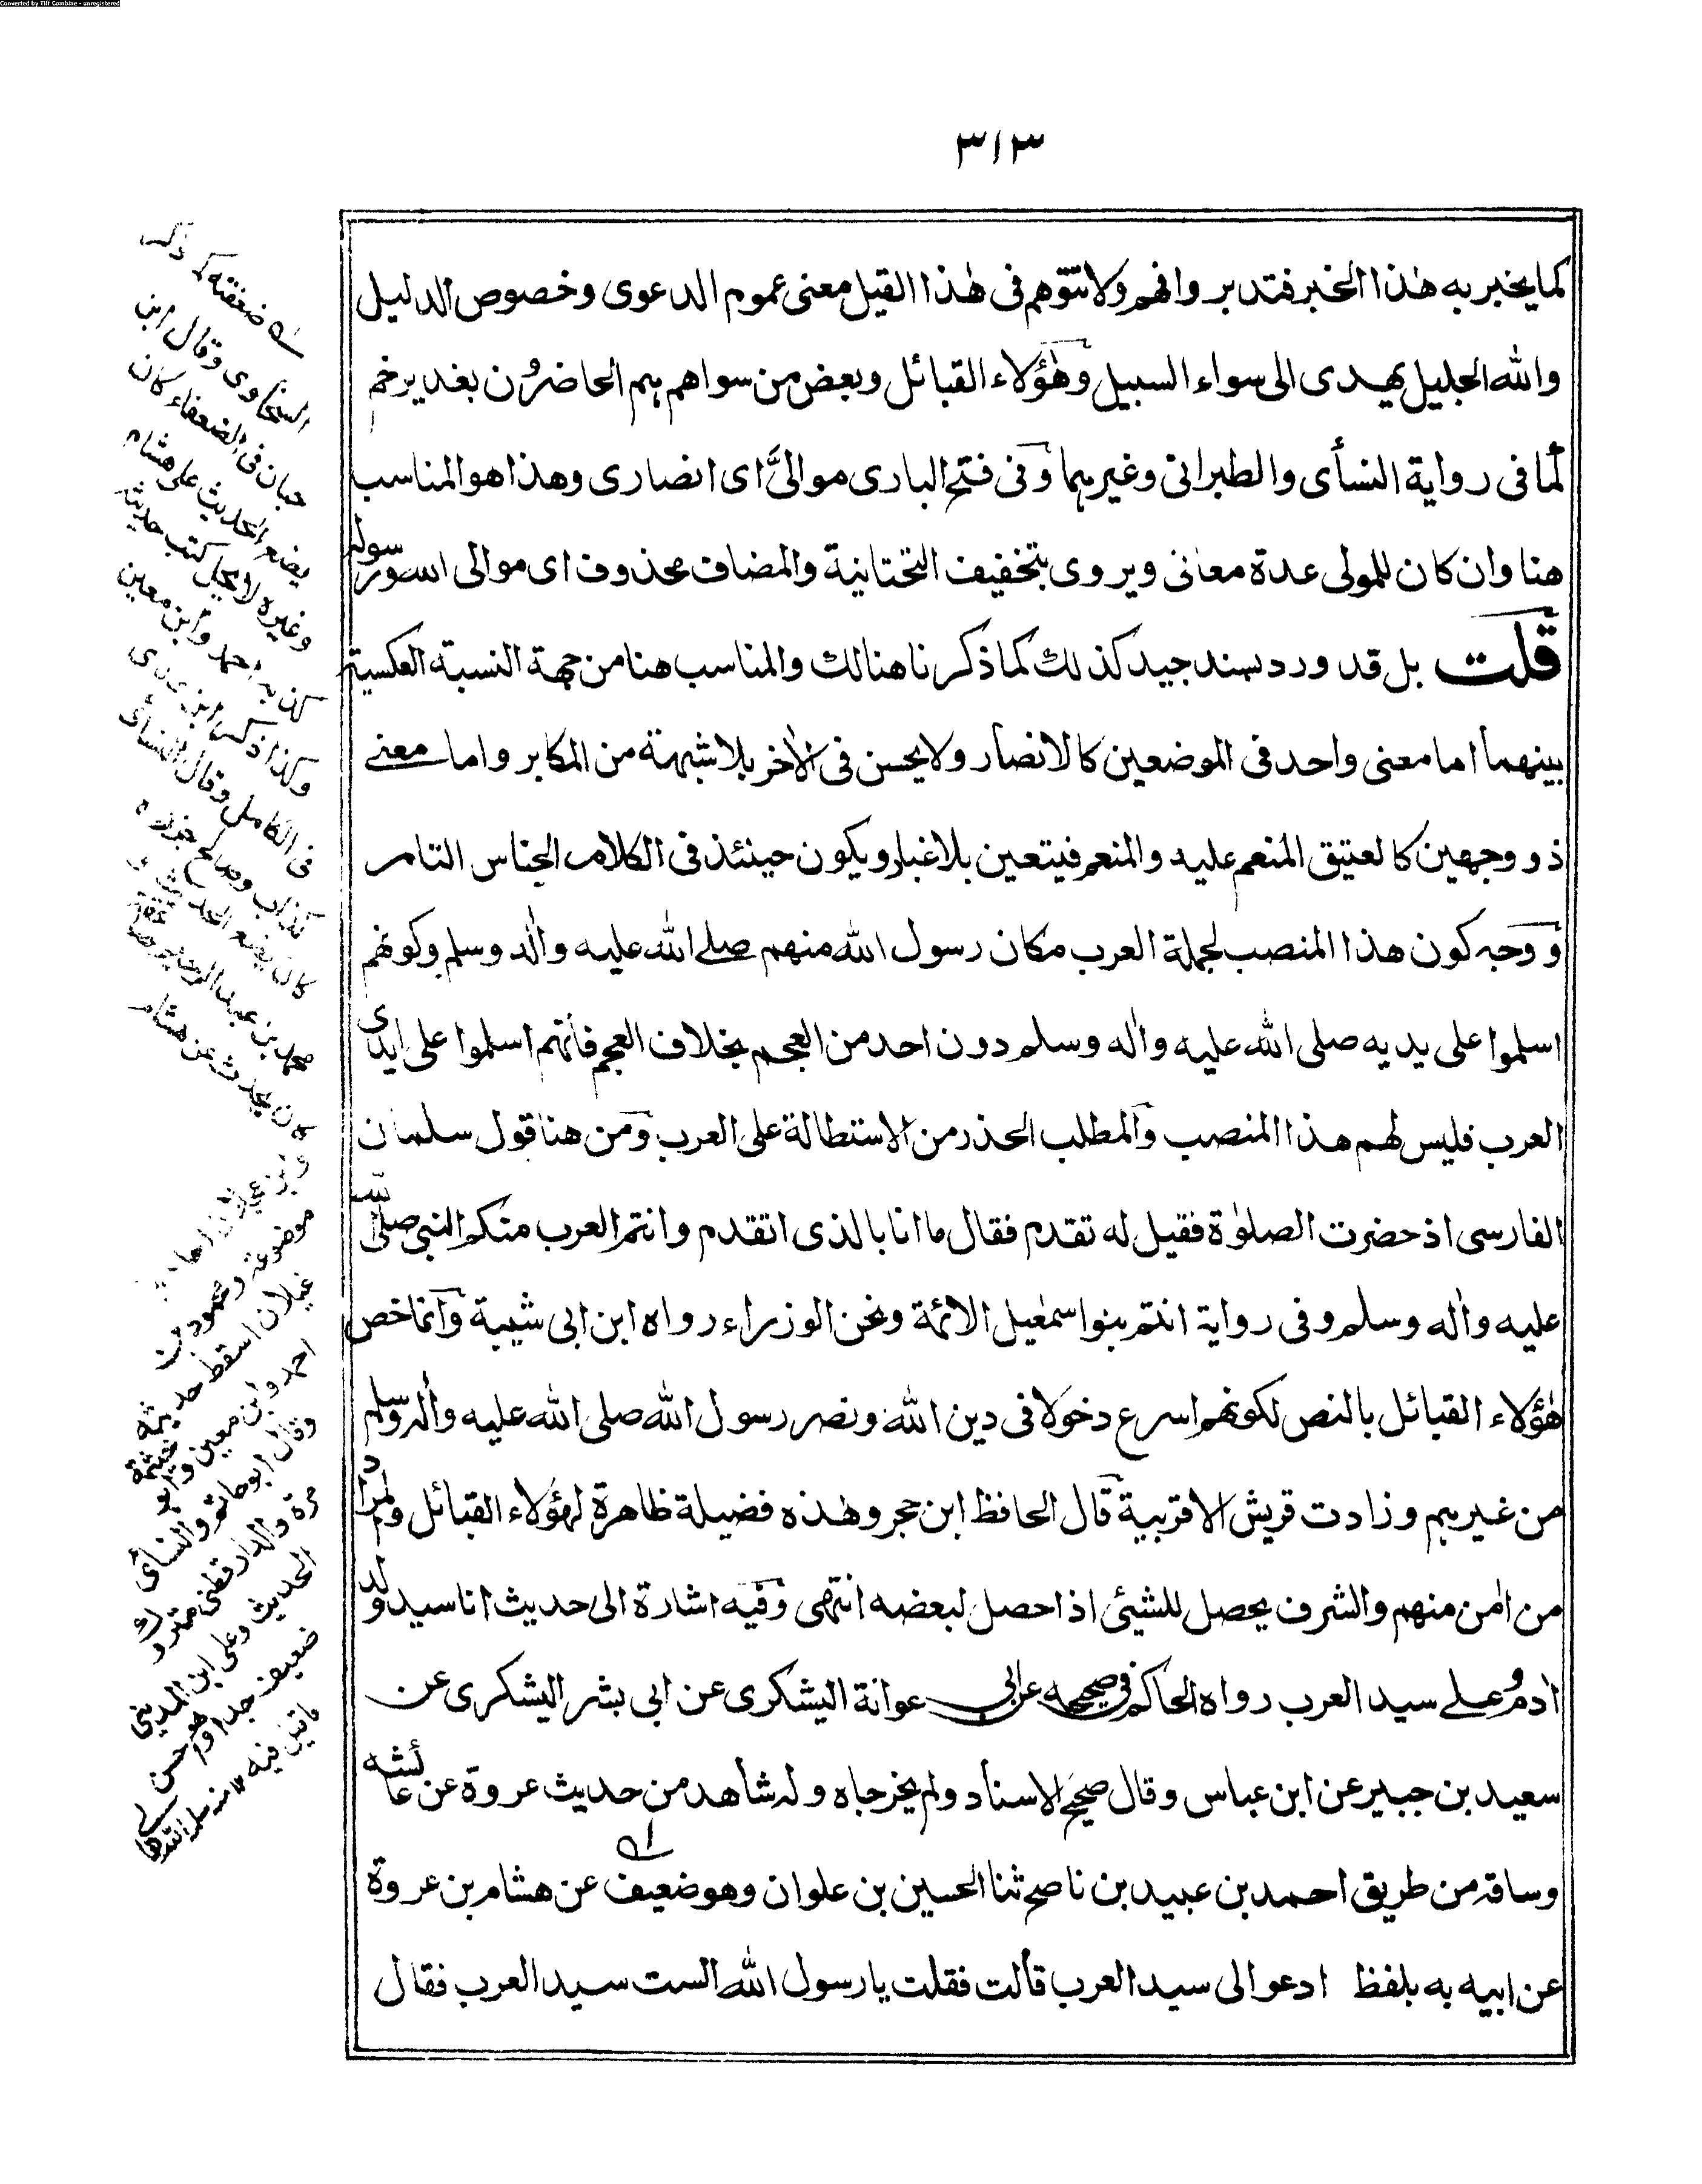 Converted by Tiff Combine - unregistered
٣١٣
كما يخبر به هٰذا الخبر فتدبر وافهم ولا تتوهم فى هٰذا القيل معنى عموم الدعوى وخصوص الدليل
والله الجليل يهدى الى سواء السبيل وهٰؤلاء القبائل وبعض من سواهم هم الحاضرون بغدير خم
لما فى رواية النسأى والطبرانى وغيرهما وفى فتح البارى موالىَّ اى انصارى وهذا هو المناسب
هنا وان كان للمولى عدة معانى ويروى بتخفيف التحتانية والمضاف محذوف اى موالى الله ورسوله
قلت بل قد ورد بسند جيد كذلك كما ذكرنا هنالك والمناسب هنا من جهة النسبة العكسية
بينهما اما معنى واحد فى الموضعين كالانصار ولا يحسن فى الاٰخر بلا شبهة من المكابر واما معنے
ذو وجهين كالعتيق المنعم عليه والمنعم فيتعين بلا غبار ويكون حينئذ فى الكلام الجناس التام
ووجه كون هذا المنصب لجملة العرب مكان رسول الله منهم صلے الله عليه واٰله وسلم وكونهم
اسلموا على يديه صلى الله عليه واٰله وسلم دون احد من العجم بخلاف العجم فأنهم اسلموا على ايدى
العرب فليس لهم هذا المنصب والمطلب الحذر من الاستطالة على العرب ومن هنا قول سلمان
الفارسى اذ حضرت الصلوٰة فقيل له تقدم فقال ما انا بالذى اتقدم وانتم العرب منكم النبى صلى الله
عليه واٰله وسلم وفى رواية انتم بنوا سمٰعيل الائمة ونحن الوزراء رواه ابن ابى شيبة وانما خص
هٰؤلاء القبائل بالنص لكونهم اسرع دخولا فى دين الله ونصر رسول الله صلى الله عليه واٰله وسلم
من غيرهم وزادت قريش الاقربية قال الحافظ ابن حجر وهٰذه فضيلة ظاهرة لهؤلاء القبائل والمراد
من اٰمن منهم والشرف يحصل للشيئ اذا حصل لبعضه انتهى وفيه اشارة الى حديث انا سيد ولد
ادم وعلے سيد العرب رواه الحاكم فى صحيحه عن ابى عوانة اليشكرى عن ابى بشر اليشكرى عن
سعيد بن جبير عن ابن عباس وقال صحيح الاسناد ولم يخرجاه وله شاهد من حديث عروة عن عائشه
وساقه من طريق احمد بن عبيد بن ناصح ثنا الحسين بن علوان وهو ضعيف عن هشام بن عروة
عن ابيه به بلفظ ادعوا لى سيد العرب قالت فقلت يا رسول الله الست سيد العرب فقال
ضعفه كذا ذكر
السخاوى وقال ابن
حبان فى الضعفاء كان
يضع الحديث على هشام
وغيره لا يحل كتب حديثه
كذبه احمد وابن معين
وكذا ذكر ابن عدى
فى الكامل وقال النسائى
كذاب وصالح جزره
كان يضع الحديث
محمد بن عبد الرحيم
كان يحدث عن هشام
موضوعة ومحمود بن
غيلان اسقط حديثه
احمد وابن معين وابو خيثمة
وقال ابو حاتم والنسأى
مرة والدارقطنى متروك
الحديث وعلى ابن المدينى
ضعيف جدا وهو حسن
ما قيل فيه